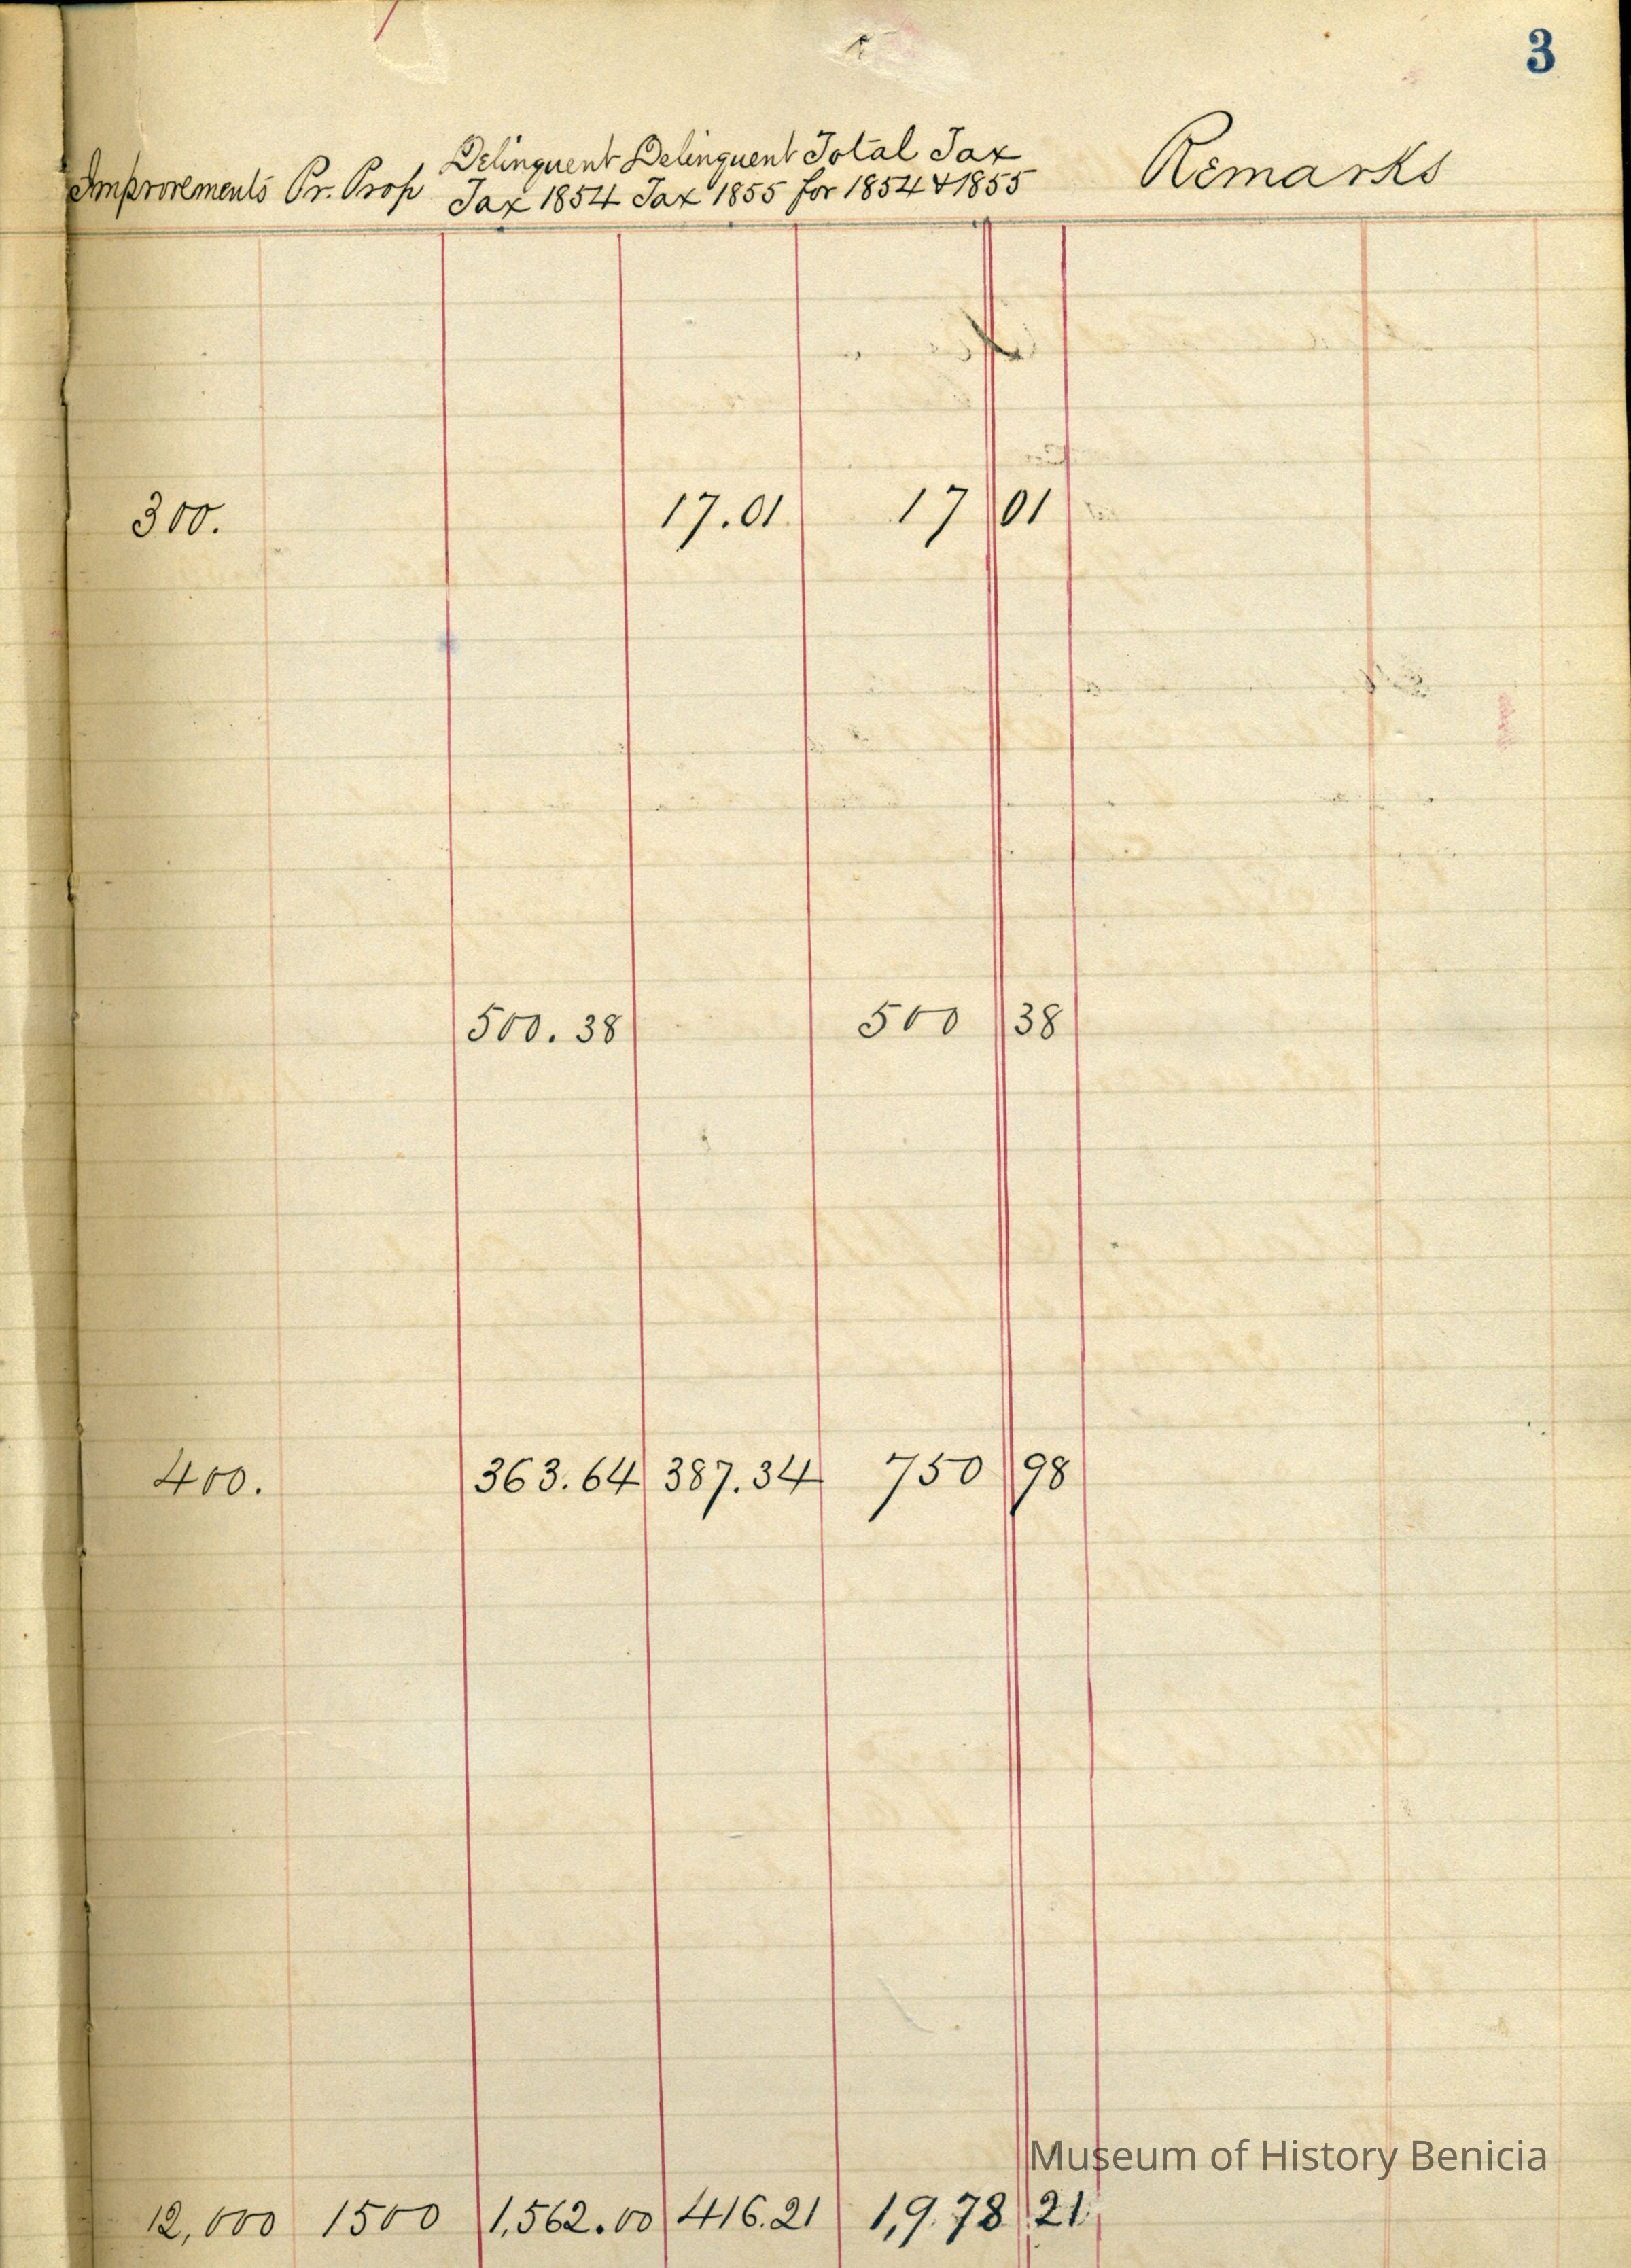 3
Delinquent Delinquent Total Tax
Improvements Pr. Prop Tax 1854 Tax 1855 for 1854 & 1855 Remarks
300. 17.01 17 01
500.38 500 38
400. 363.64 387.34 750 98
Museum of History Benicia
12,000 1500 1,562.00 416.21 1,978 21